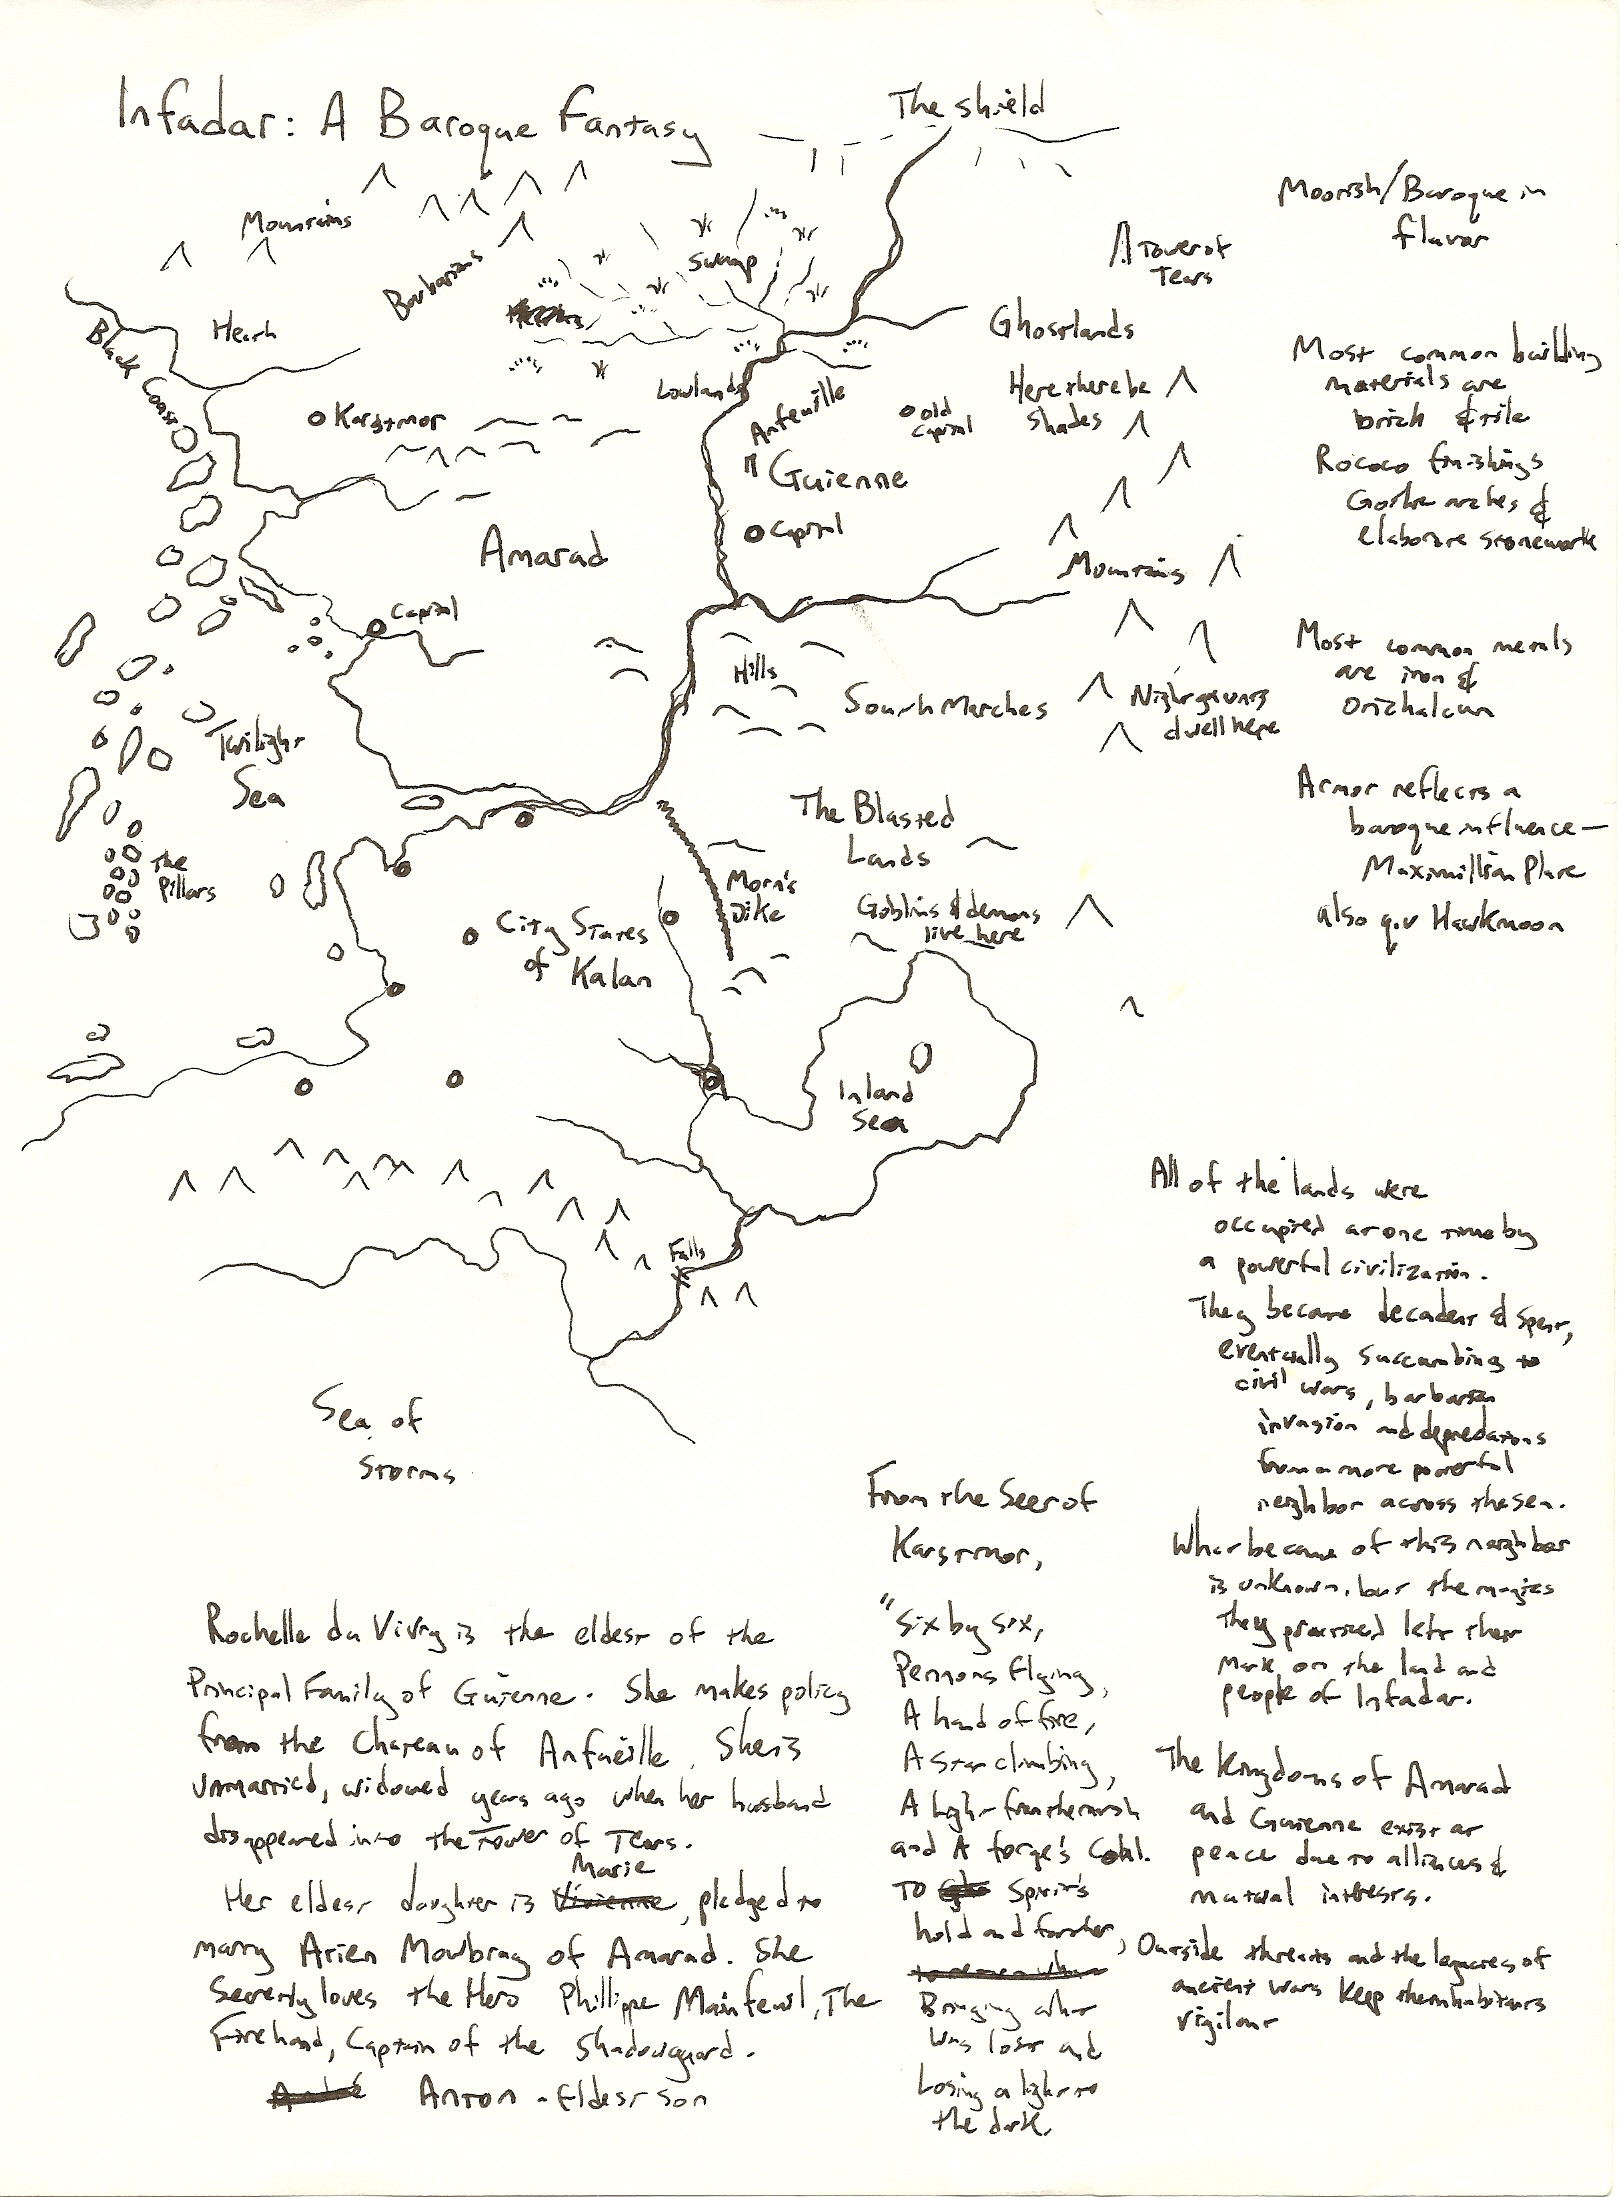 Infadar: A Baroque Fantasy
The Shield
Mountains
Barbarians
Swamp
Tower of
Tears
Moorish/Baroque in
flavor
Black Coast
Heath
Ghostlands
Lowlands
Anfeuille
old
Capital
Here there be
Shades
Karstmor
Guienne
Capitol
Amarad
Capitol
Mountains
Hills
South Marches
Nightgaunts
dwell here
Twilight
Sea
The
Pillars
The Blasted
Lands
Morn's
Dike
Goblins & demons
live here
City States
of Kalan
Inland
Sea
Falls
Sea of
Storms
Most common building
materials are
brick & tile
Rococo finishings
Gothic arches &
elaborate stonework
Most common metals
are iron &
Orichalcum
Armor reflects a
baroque influence—
Maximillian Plate
also q.v Hawkmoon
All of the lands were
occupied at one time by
a powerful civilization.
They became decadent & spent,
eventually succumbing to
civil wars, barbarian
invasion and depredations
from a more powerful
neighbor across the sea.
What became of this neighbor
is unknown, but the magics
they practiced left their
Mark on the land and
people of Infadar.
The Kingdoms of Amarad
and Guienne exist at
peace due to alliances &
mutual interests.
Outside threats and the legacies of
ancient wars keep the inhabitants
vigilant
From the Seer of
Karstmor,
"Six by six,
Pennons flying,
A hand of fire,
A star climbing,
A light from the marsh
and A forge's Coal.
TO Spirit's
hold and further,
Bringing what
was lost and
Losing a light to
the dark.
Rochelle du Vivry is the eldest of the
Principal Family of Guienne. She makes policy
from the Chateau of Anfueille. She is
Unmarried, widowed years ago when her husband
disappeared into the Tower of Tears.
Marie
Her eldest daughter is Vivienne, pledged to
marry Arien Moubray of Amarad. She
Secretly loves the Hero Phillippe Mainfeuil, The
Firehand, Captain of the Shadowguard.
Anton - Eldest son